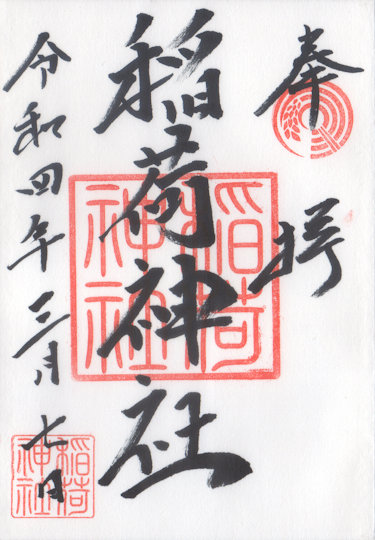 奉拝
稲荷神社
稲荷神社
令和四年三月七日
稲荷神社